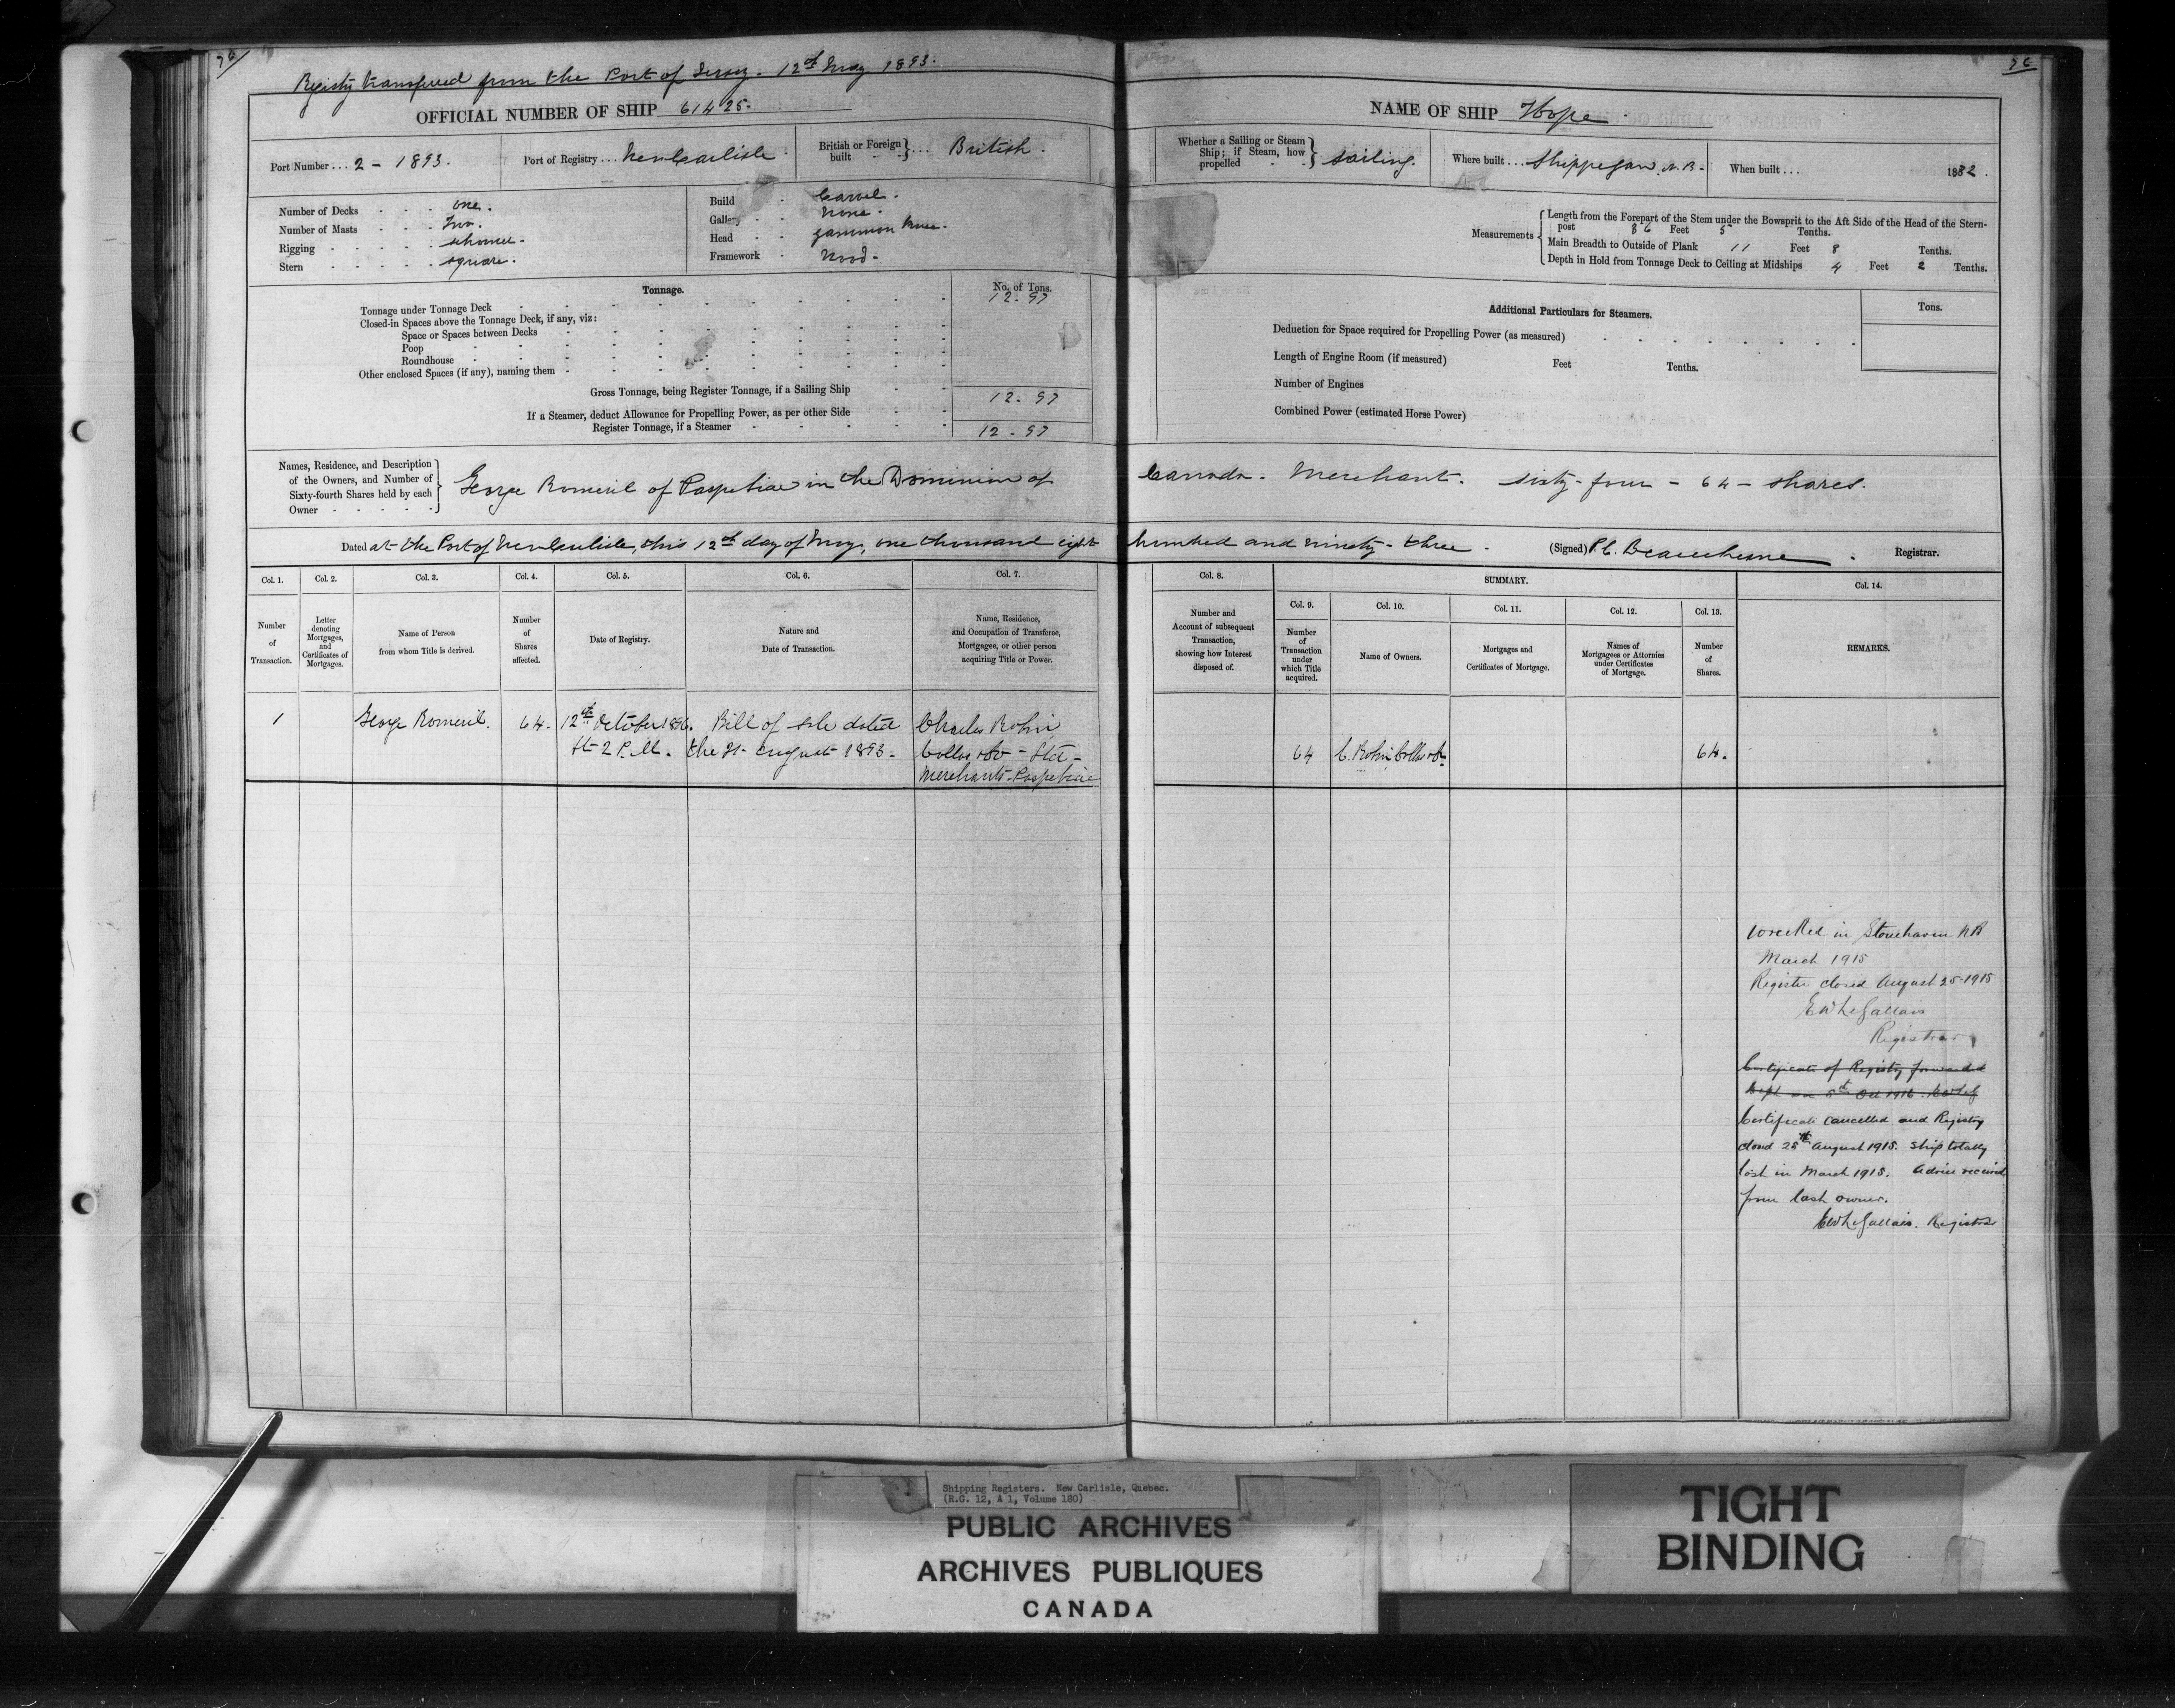 76
76
Registry transferred from the Port of Jersey. 12th May 1893.
OFFICIAL NUMBER OF SHIP 61425.
NAME OF SHIP Hope
Port Number ... 2 - 1893.
Port of Registry ... New Carlisle
British or Foreign built } ... British.
Whether a Sailing or Steam Ship; if Steam, how propelled } Sailing.
Where built ... Shippegan, N.B.
When built ... 1882.
Number of Decks one.
Number of Masts Two.
Rigging schooner.
Stern square.
Build Carvel.
Gallery None.
Head gammon knee.
Framework Wood.
Measurements
Length from the Forepart of the Stem under the Bowsprit to the Aft Side of the Head of the Stern-
post 36 Feet 5 Tenths.
Main Breadth to Outside of Plank 11 Feet 8 Tenths.
Depth in Hold from Tonnage Deck to Ceiling at Midships 4 Feet 2 Tenths.
Tonnage.
No. of Tons.
Tonnage under Tonnage Deck 12.97
Closed-in Spaces above the Tonnage Deck, if any, viz:
Space or Spaces between Decks
Poop
Roundhouse
Other enclosed Spaces (if any), naming them
Gross Tonnage, being Register Tonnage, if a Sailing Ship 12.97
If a Steamer, deduct Allowance for Propelling Power, as per other Side
Register Tonnage, if a Steamer 12.97
Additional Particulars for Steamers.
Tons.
Deduction for Space required for Propelling Power (as measured)
Length of Engine Room (if measured) Feet Tenths.
Number of Engines
Combined Power (estimated Horse Power)
Names, Residence, and Description
of the Owners, and Number of
Sixty-fourth Shares held by each
Owner
George Romeril of Paspebiac in the Dominion of Canada. Merchant. sixty-four - 64 - shares.
Dated at the Port of New Carlisle, this 12th day of May, one thousand eight hundred and ninety-three. (Signed) P.C. Beauchesne. Registrar.
Col. 1.
Col. 2.
Col. 3.
Col. 4.
Col. 5.
Col. 6.
Col. 7.
Col. 8.
SUMMARY.
Col. 9.
Col. 10.
Col. 11.
Col. 12.
Col. 13.
Col. 14.
Number
of
Transaction.
Letter
denoting
Mortgages,
and
Certificates of
Mortgages.
Name of Person
from whom Title is derived.
Number
of
Shares
affected.
Date of Registry.
Nature and
Date of Transaction.
Name, Residence,
and Occupation of Transferee,
Mortgagee, or other person
acquiring Title or Power.
Number and
Account of subsequent
Transaction,
showing how Interest
disposed of.
Number
of
Transaction
under
which Title
acquired.
Name of Owners.
Mortgages and
Certificates of Mortgage.
Names of
Mortgagees or Attornies
under Certificates
of Mortgage.
Number
of
Shares.
REMARKS.
1 George Romeril. 64. 12th October 1896. Bill of sale dated Charles Robin
at 2 P.M. the 21 August 1893. Collas & Co - Ltd -
Merchants. Paspebiac
64 C. Robin Collas & Co 64.
Wrecked in Stonehaven NB
March 1915
Register closed August 25-1915
EW LeGallais
Registrar
Certificate of Registry forwarded
Dept on 5th Oct 1916.
Certificate cancelled and Registry
closed 25th August 1915. Ship totally
lost in March 1915. Advice received
from last owner.
EW LeGallais. Registrar
Shipping Registers. New Carlisle, Quebec.
(R.G. 12, A 1, Volume 180)
PUBLIC ARCHIVES
ARCHIVES PUBLIQUES
CANADA
TIGHT
BINDING